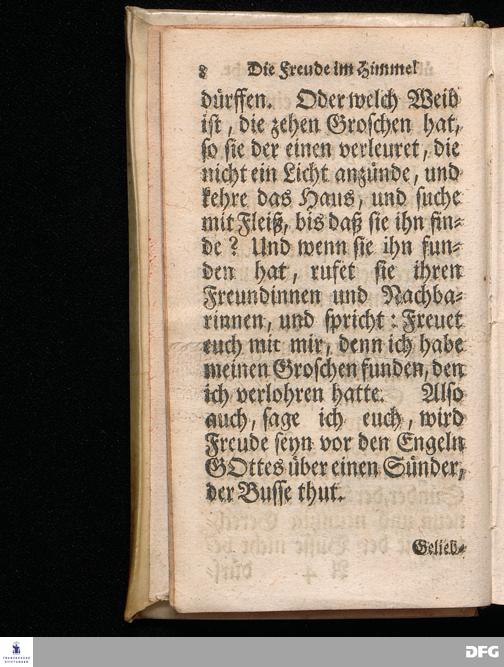 8 Die Freude im Himmel
dürffen. Oder welch Weib
ist, die zehen Groschen hat,
so sie der einen verleuret, die
nicht ein Licht anzünde, und
kehre das Haus, und suche
mit Fleiß, bis daß sie ihn fin-
de? Und wenn sie ihn fun-
den hat, rufet sie ihren
Freundinnen und Nachba-
rinnen, und spricht: Freuet
euch mit mir, denn ich habe
meinen Groschen funden, den
ich verlohren hatte. Also
auch, sage ich euch, wird
Freude seyn vor den Engeln
GOttes über einen Sünder,
der Busse thut.
Gelieb-
FRANCKESCHE STIFTUNGEN
DFG